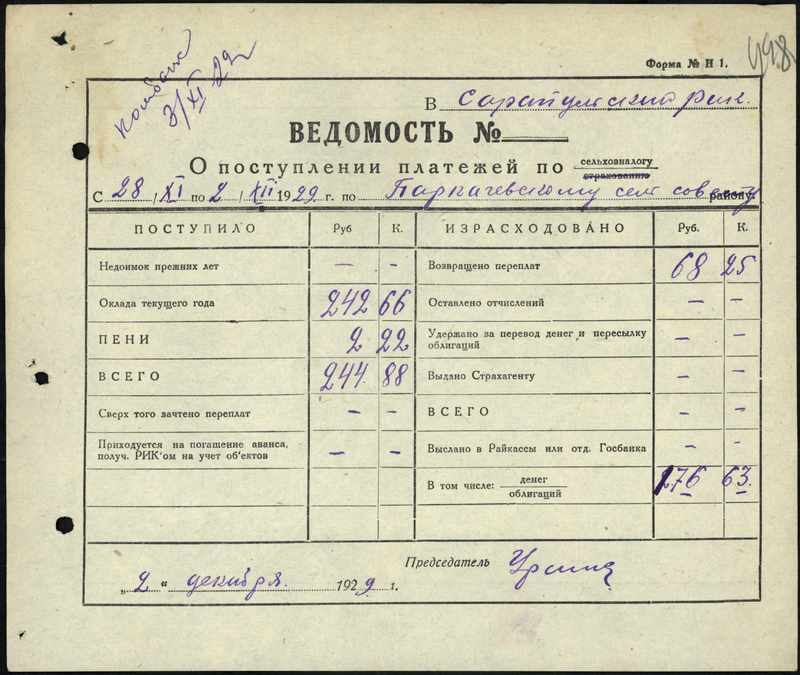 498
Форма № Н 1.
3/XI 29
В Сарапульский рик.
ВЕДОМОСТЬ №
О поступлении платежей по сельхозналогу страхованию
С 28/XI по 2/XII 1929 г. по Паркачевскому сел совету району.
ПОСТУПИЛО Руб К. ИЗРАСХОДОВАНО Руб. К.
Недоимок прежних лет — - Возвращено переплат 68 25
Оклада текущего года 242 66 Оставлено отчислений — —
ПЕНИ 2 22 Удержано за перевод денег и пересылку облигаций — —
ВСЕГО 244 88 Выдано Страхагенту — —
Сверх того зачтено переплат — — ВСЕГО — —
Приходуется на погашение аванса, получ. РИК'ом на учет об'ектов — — Выслано в Райкассы или отд. Госбанка — —
В том числе: денег облигаций 176 63.
Председатель
„2" декабря. 1929 г.